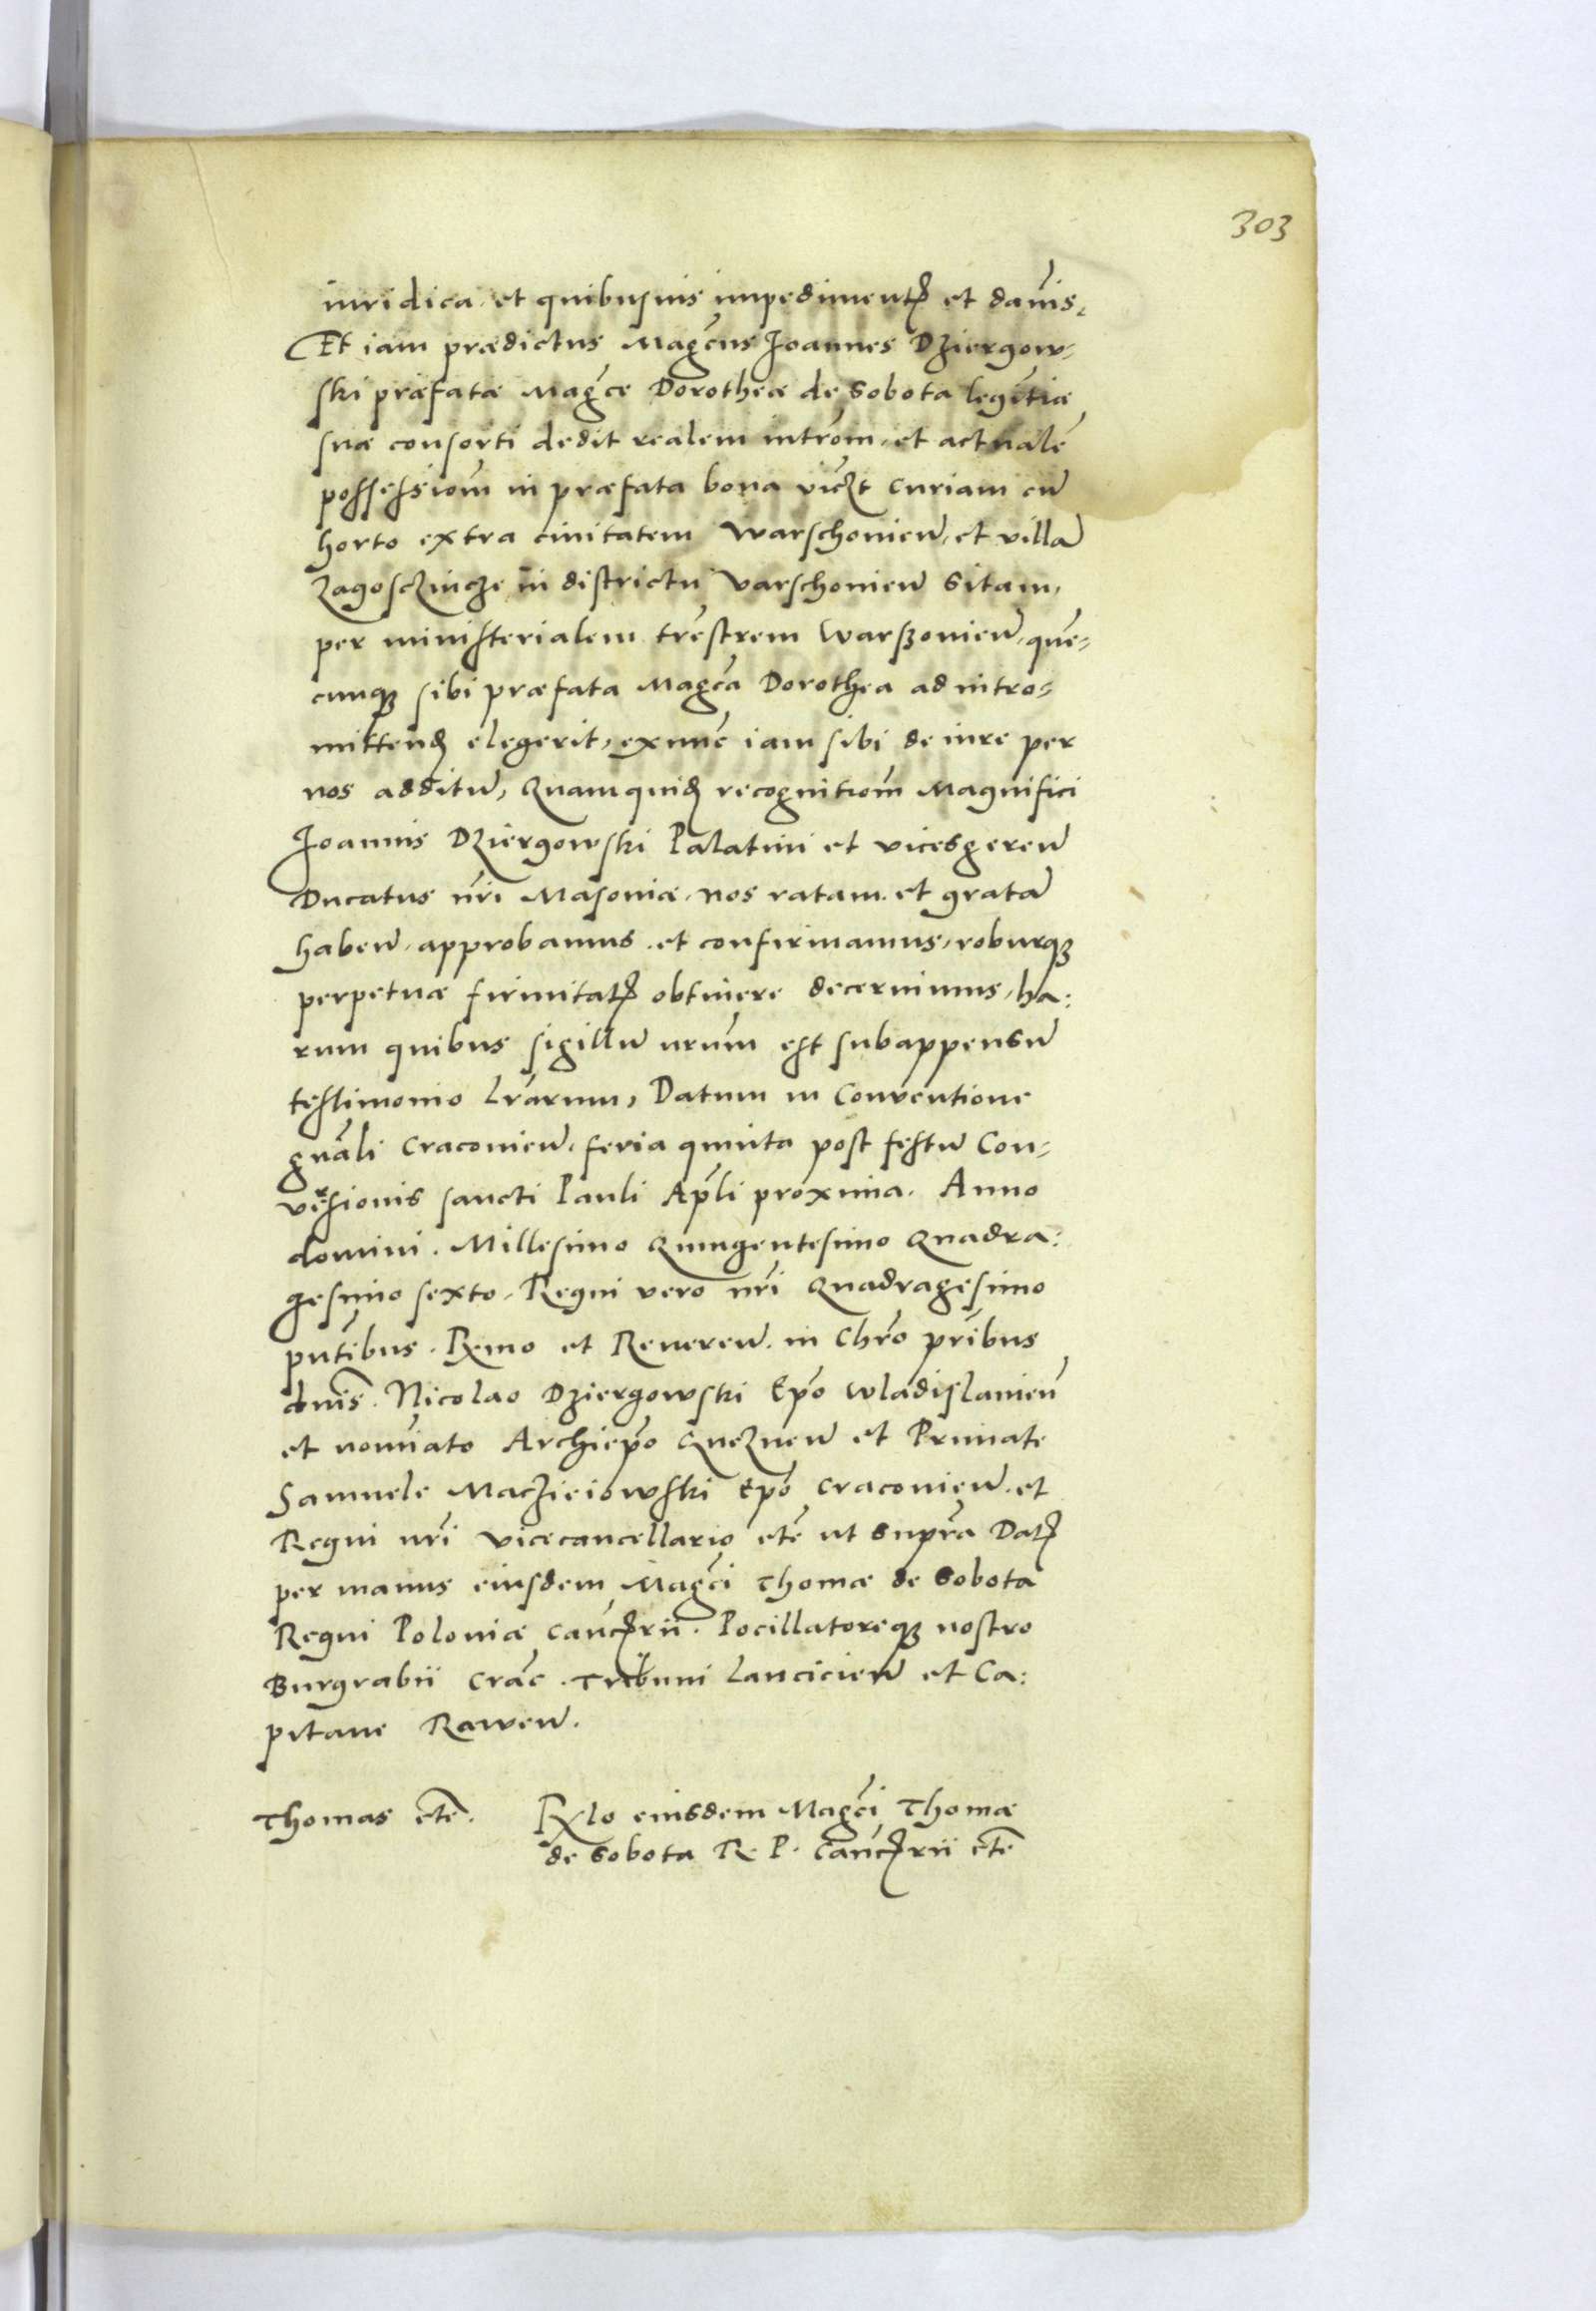 303
iuridica et quibusuis impedimentꝭ et dam̄is.
Et iam prædictus Magc̄us Joannes Dziergow-
ski præfatæ Magc̄æ Dorotheæ de Sobota legit̄iæ
suæ consorti dedit realem introm̄, et actualē
possessiom̄ in præfata bona viczt curiam cū
horto extra ciuitatem Warschonien̄, et villā
Zagosczincze in districtu Varschonien̄ sitam,
per ministerialem trēstrem Warszonien̄, quē-
cunqꝫ sibi præfata Magc̄a Dorothea ad intro-
mittenđ elegerit, ex nūc iam sibi de iure per
nos additū, Quamquiđ recognitiom̄ Magnifici
Joannis Dziergowski Palatini et vicesgeren̄
Ducatus nr̄i Masoniæ, nos ratam et gratā
haben̄, approbamus et confirmamus, roburqꝫ
perpetuæ firmitatꝭ obtinere decernimus, ha:
rum quibus sigillū nrum̄ est subappensū
testimonio lrārum, Datum in Conuentione
gnāli Cracouien̄, feria quinta post festū Con-
uersionis sancti Pauli Ap̄li proxima. Anno
domini. Millesimo Quingentesimo Quadra:
gesimo sexto. Regni vero nr̄i Quadragesimo
pn̄tibus. Rx̄mo et Reueren̄. in Chrō prībus
dn̄is. Nicolao Dziergowski Ep̄o Wladislauien̄
et nomīato Archiep̄o Gneznen̄ et Primate
Samuele Maczieiowski Ep̄o Cracouien̄. et
Regni nr̄i Vicecancellario etc̄ ut suprā Datꝭ
per manus eiusdem Magc̄i Thomæ de Sobota
Regni Poloniæ Canc̄ꝭrii. Pocillatoreqꝫ nostro
Burgrabii Crāc. Tribuni Lancicien̄ et Ca:
pitane Rawen̄.
Thomas etc̄. Rx̄lo eiusdem Magc̄i Thomæ
de Sobota R. P. Canc̄ꝭrii etc̄